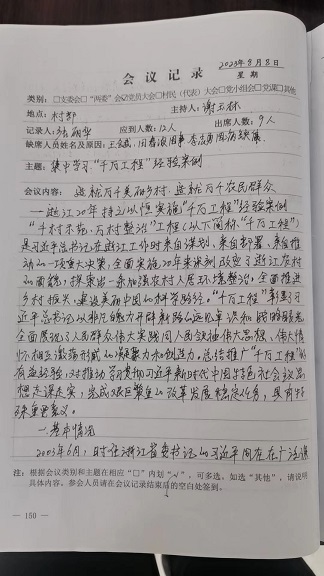 2023年8月8日
会议记录 星期
类别：□支委会□“两委”会☑党员大会□村民（代表）大会□党小组会□党课□其他
地点：村部 主持人：谢玉林
记录人： 应到人数：12人 出席人数：9人
缺席人员姓名及原因：
主题：集中学习“千万工程”经验案例
会议内容：造就万千美丽乡村，造就万千农民群众
——浙江20年持之以恒实施“千万工程”经验案例
“千村示范、万村整治”工程（以下简称“千万工程”）
是习近平总书记在浙江工作时亲自谋划、亲自部署、亲自推
动的一项重大决策，全面实施20年来深刻改变了浙江农村
的面貌，探索出一条加强农村人居环境整治，全面推进
乡村振兴、建设美丽中国的科学路径。“千万工程”彰显了习
近平总书记以非凡魄力开辟新路的远见卓识和战略眼光
全面展现了人民群众伟大实践同人民领袖伟大思想、伟大情
怀相互激荡形成的凝聚力和创造力。总结推广“千万工程”的
有益经验，对推动学习贯彻习近平新时代中国特色社会主义思
想走深走实，完成艰巨繁重的改革发展稳定任务，具有特
殊重要意义。
一、基本情况
2003年6月，时任浙江省委书记的习近平同志在广泛深
注：根据会议类别和主题在相应“□”内划“√”，可多选，如选“其他”，请说明
具体内容。参会人员请在会议记录结束后的空白处签到。
— 150 —